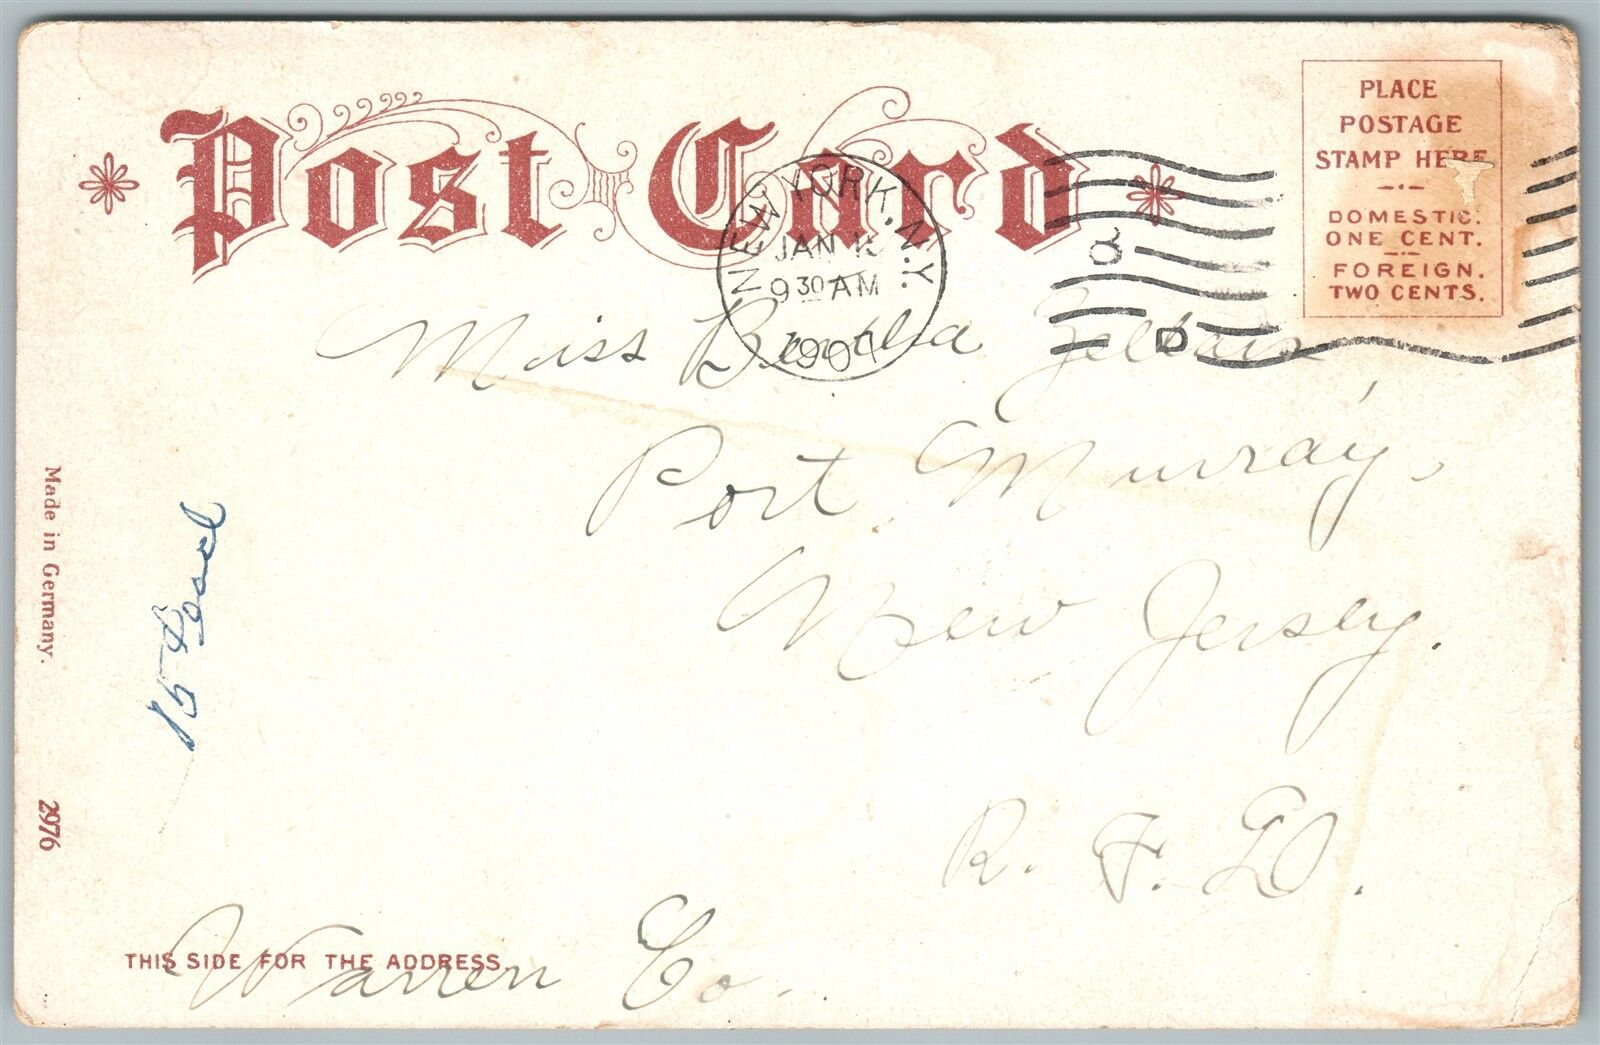 Post Card
PLACE
POSTAGE
STAMP HERE
DOMESTIC.
ONE CENT.
FOREIGN.
TWO CENTS.
NEW YORK, N.Y.
JAN 15
9 30 AM
1907
Miss Bertha
Port Murray,
New Jersey.
R. F. D.
Warren Co.
THIS SIDE FOR THE ADDRESS.
Made in Germany.
2976
15